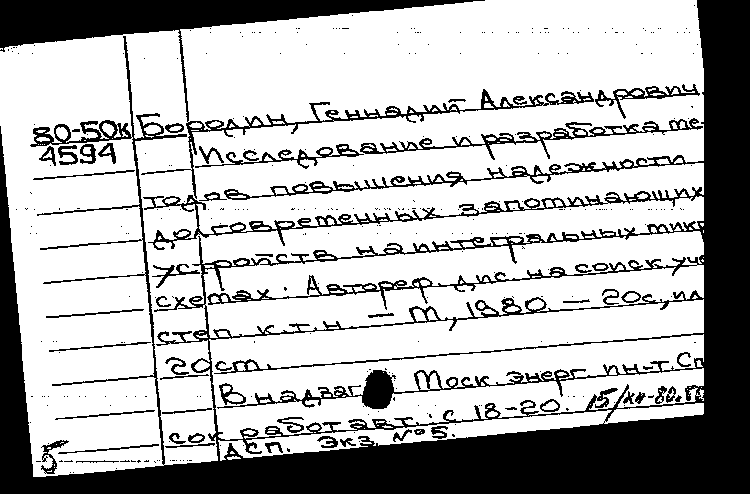 80-50к Бородин, Геннадий Александрович.
4594 Исследование и разработка ме-
тодов повышения надежности
долговременных запоминающих
устройств на интегральных микр
схемах. Автореф. дис. на соиск. уче
степ. к.т.н. — М., 1980. — 20с., ил
20см.
В надзаг. Моск. энерг. ин-т. Сп
сок работ авт.: с. 18-20.
АСП. Экз №5.
5